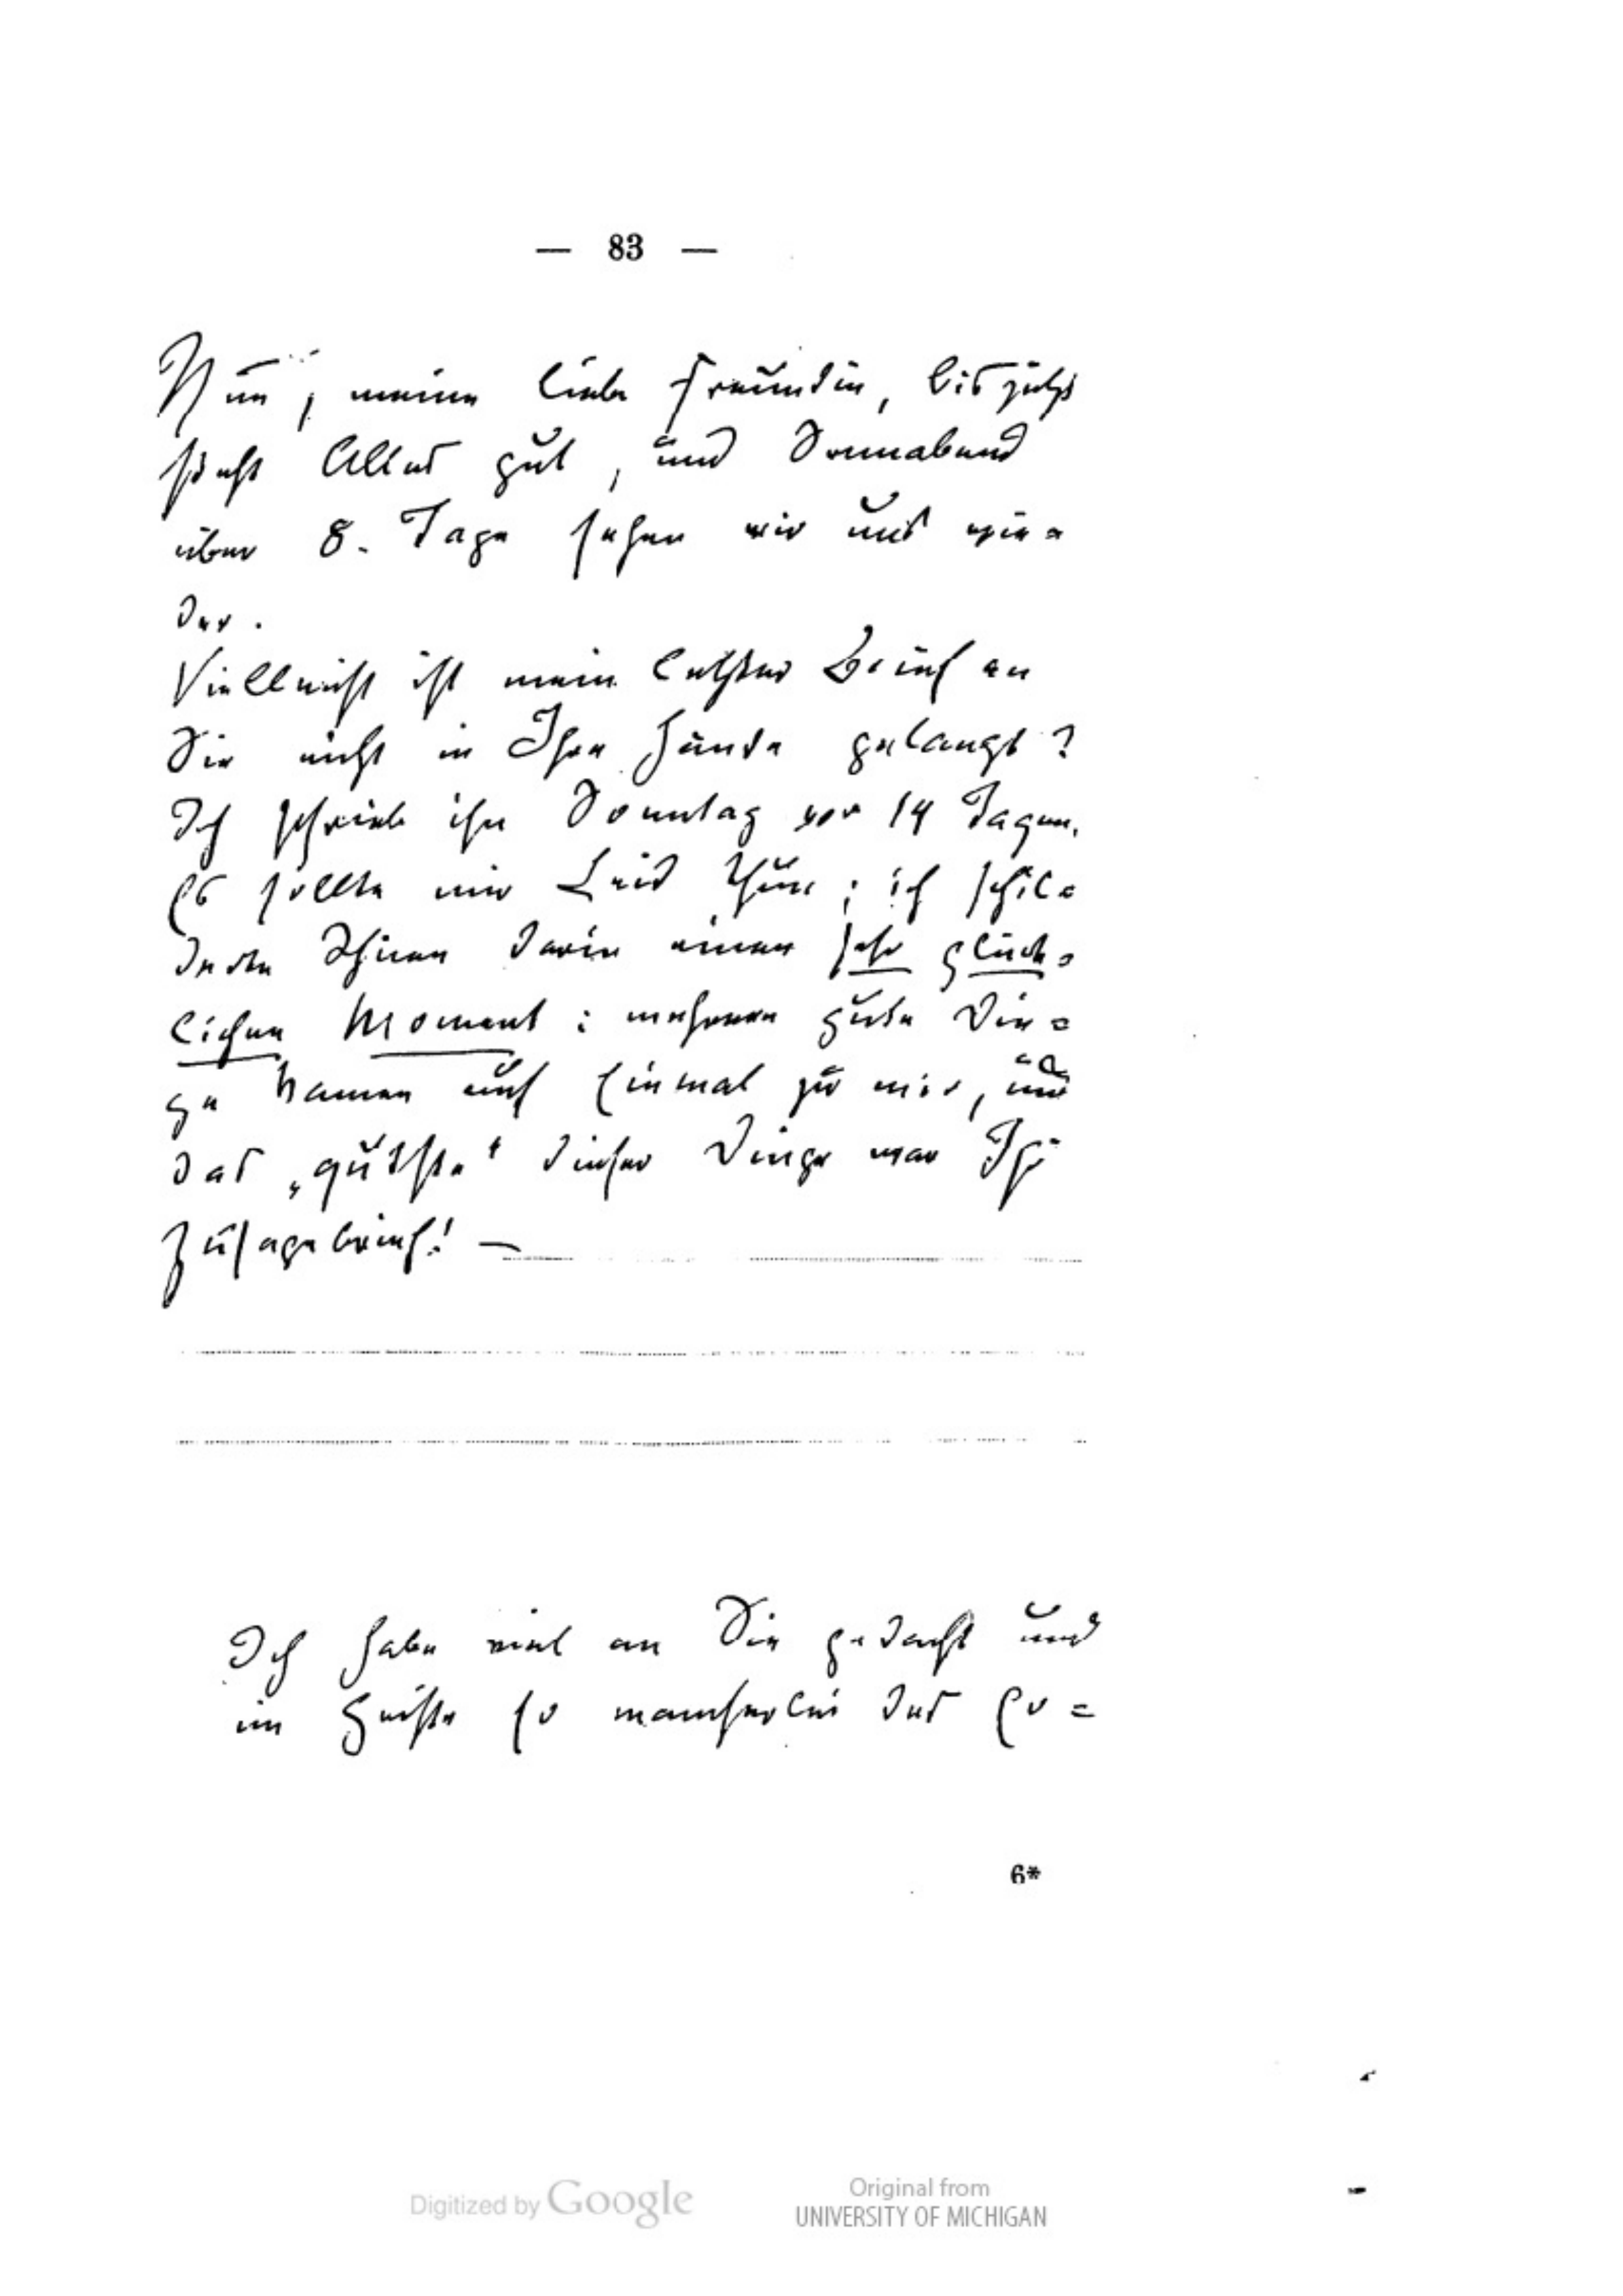 — 83 —
Nun, meine liebe Freundin, bis jetzt
steht Alles gut, und Sonnabend
über 8. Tage sehen wir uns wie=
der.
Vielleicht ist mein letzter Brief an
Sie nicht in Ihre Hände gelangt?
Ich schrieb ihn Sonntag vor 14 Tagen.
Es sollte mir Leid thun; ich schil=
derte Ihnen darin einen sehr glück=
lichen Moment: mehrere gute Din=
ge kamen auf Einmal zu mir, und
das „gutste“ dieser Dinge war Ihr
Zusagebrief! —
Ich habe viel an Sie gedacht und
im Geiste so mancherlei des Er=
6*
Digitized by Google
Original from
UNIVERSITY OF MICHIGAN